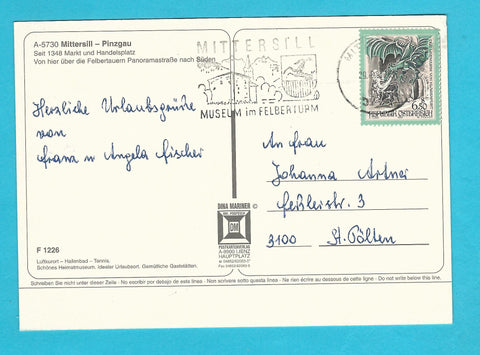 A-5730 Mittersill – Pinzgau
Seit 1348 Markt und Handelsplatz
Von hier über die Felbertauern Panoramastraße nach Süden
MITTERSILL
MUSEUM im FELBERTURM
6.50
REPUBLIK ÖSTERREICH
Herzliche Urlaubsgrüße
von
Franz u Angela Fischer
An Frau
Johanna Artner
3
3100 St. Pölten
F 1226
Luftkurort – Hallenbad – Tennis.
Schönes Heimatmuseum. Idealer Urlaubsort. Gemütliche Gaststätten.
DINA MARINER
DM
POSTKARTENVERLAG
A-9900 LIENZ
HAUPTPLATZ
Schreiben Sie nicht unter dieser Zeile - No escribir por debajo de esta linea - Non scrivere sotto questa linea - Ne rien écrire au dessous de cette ligne - Do not write below this line.